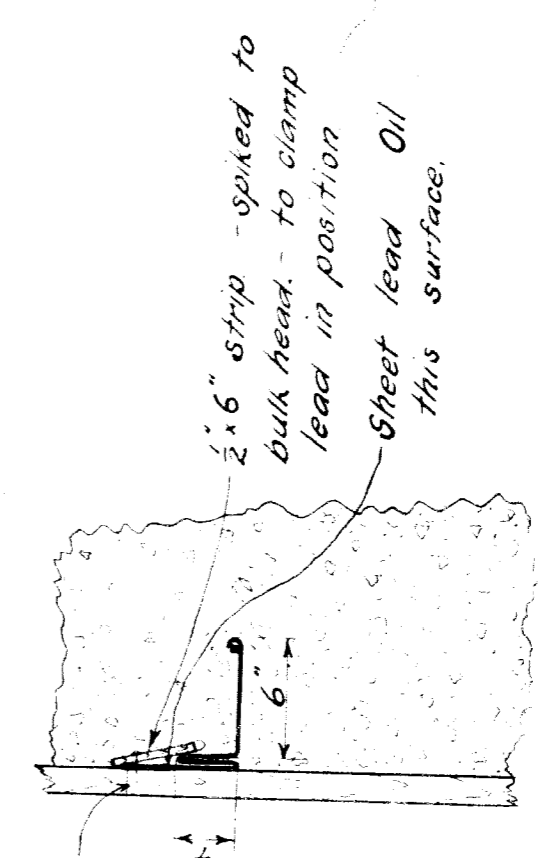 1/2" x 6" strip - spiked to
bulk head. - to clamp
lead in position
Sheet lead Oil
this surface.
6"